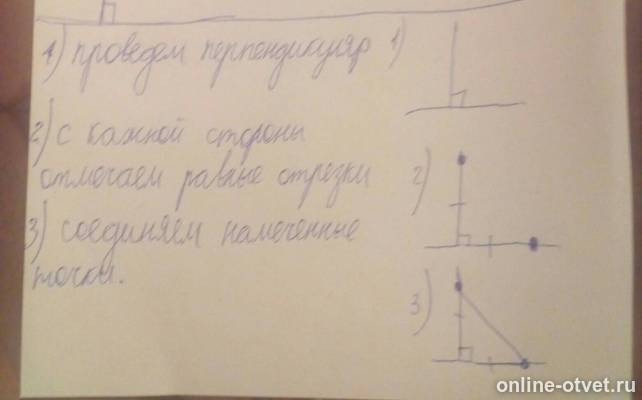 1) проведем перпендикуляр 1)
2) с кажной стороны
отмечаем равные отрезки 2)
3) соединяем намеченные
точки. 3)
online-otvet.ru